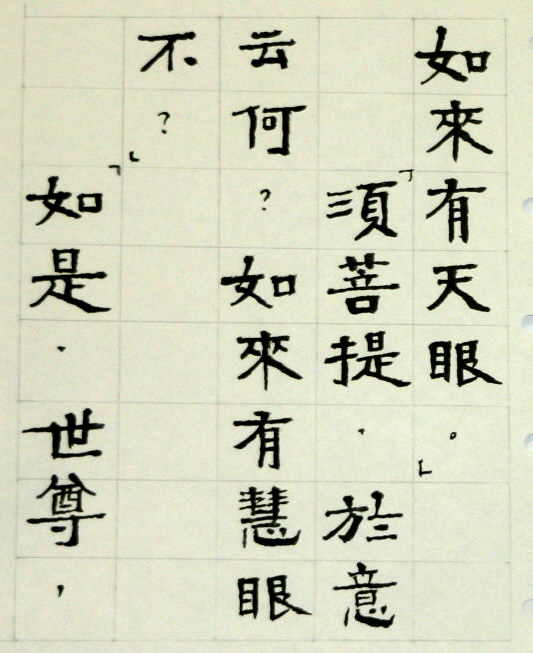 如來有天眼。」
「須菩提,於意
云何?如來有慧眼
不?」
「如是,世尊,